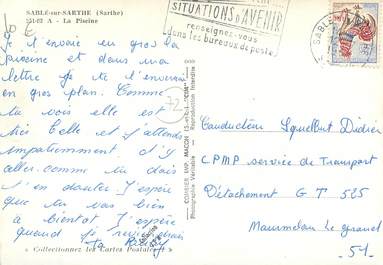 SABLÉ-sur-SARTHE (Sarthe)
251-02 A - La Piscine
Je t'envoie en gros la
piscine et dans ma
lettre je te l'enverrai
en gros plan. Comme
tu vois elle est
très belle et j'attends
impatiemment d'y
aller. comme tu dois
t'en douter J'espère
que tu vas bien
à bientôt J'espère
quand je
ta
« Collectionnez les Cartes Postales »
COMBIER IMP. MACON (S.-et-L.) "CIM"
Photographie Véritable - Reproduction Interdite
72
SITUATIONS D'AVENIR
renseignez-vous
dans les bureaux de poste
SABLE
Conducteur Squelbut Didier
CPMP service de Transport
Détachement G T 525
Mourmelon le grand
- 51 -